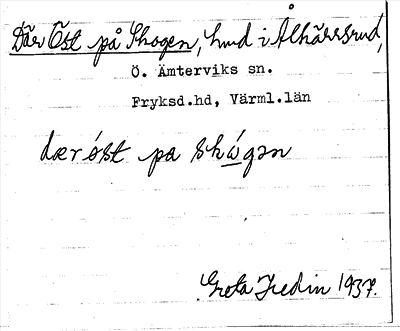 Där Öst på Skogen, hmd i Ålhärsrud,
Ö. Ämterviks sn.
Fryksd.hd, Värml.län
dær öst pa skógən
Greta Fredin 1937.